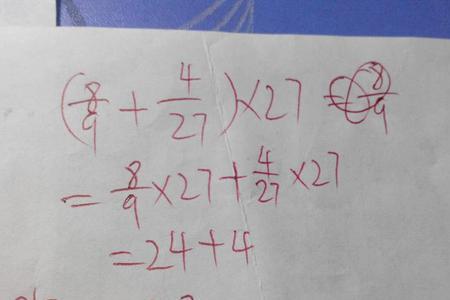 (8/9 + 4/27) × 27
= 8/9 × 27 + 4/27 × 27
= 24 + 4